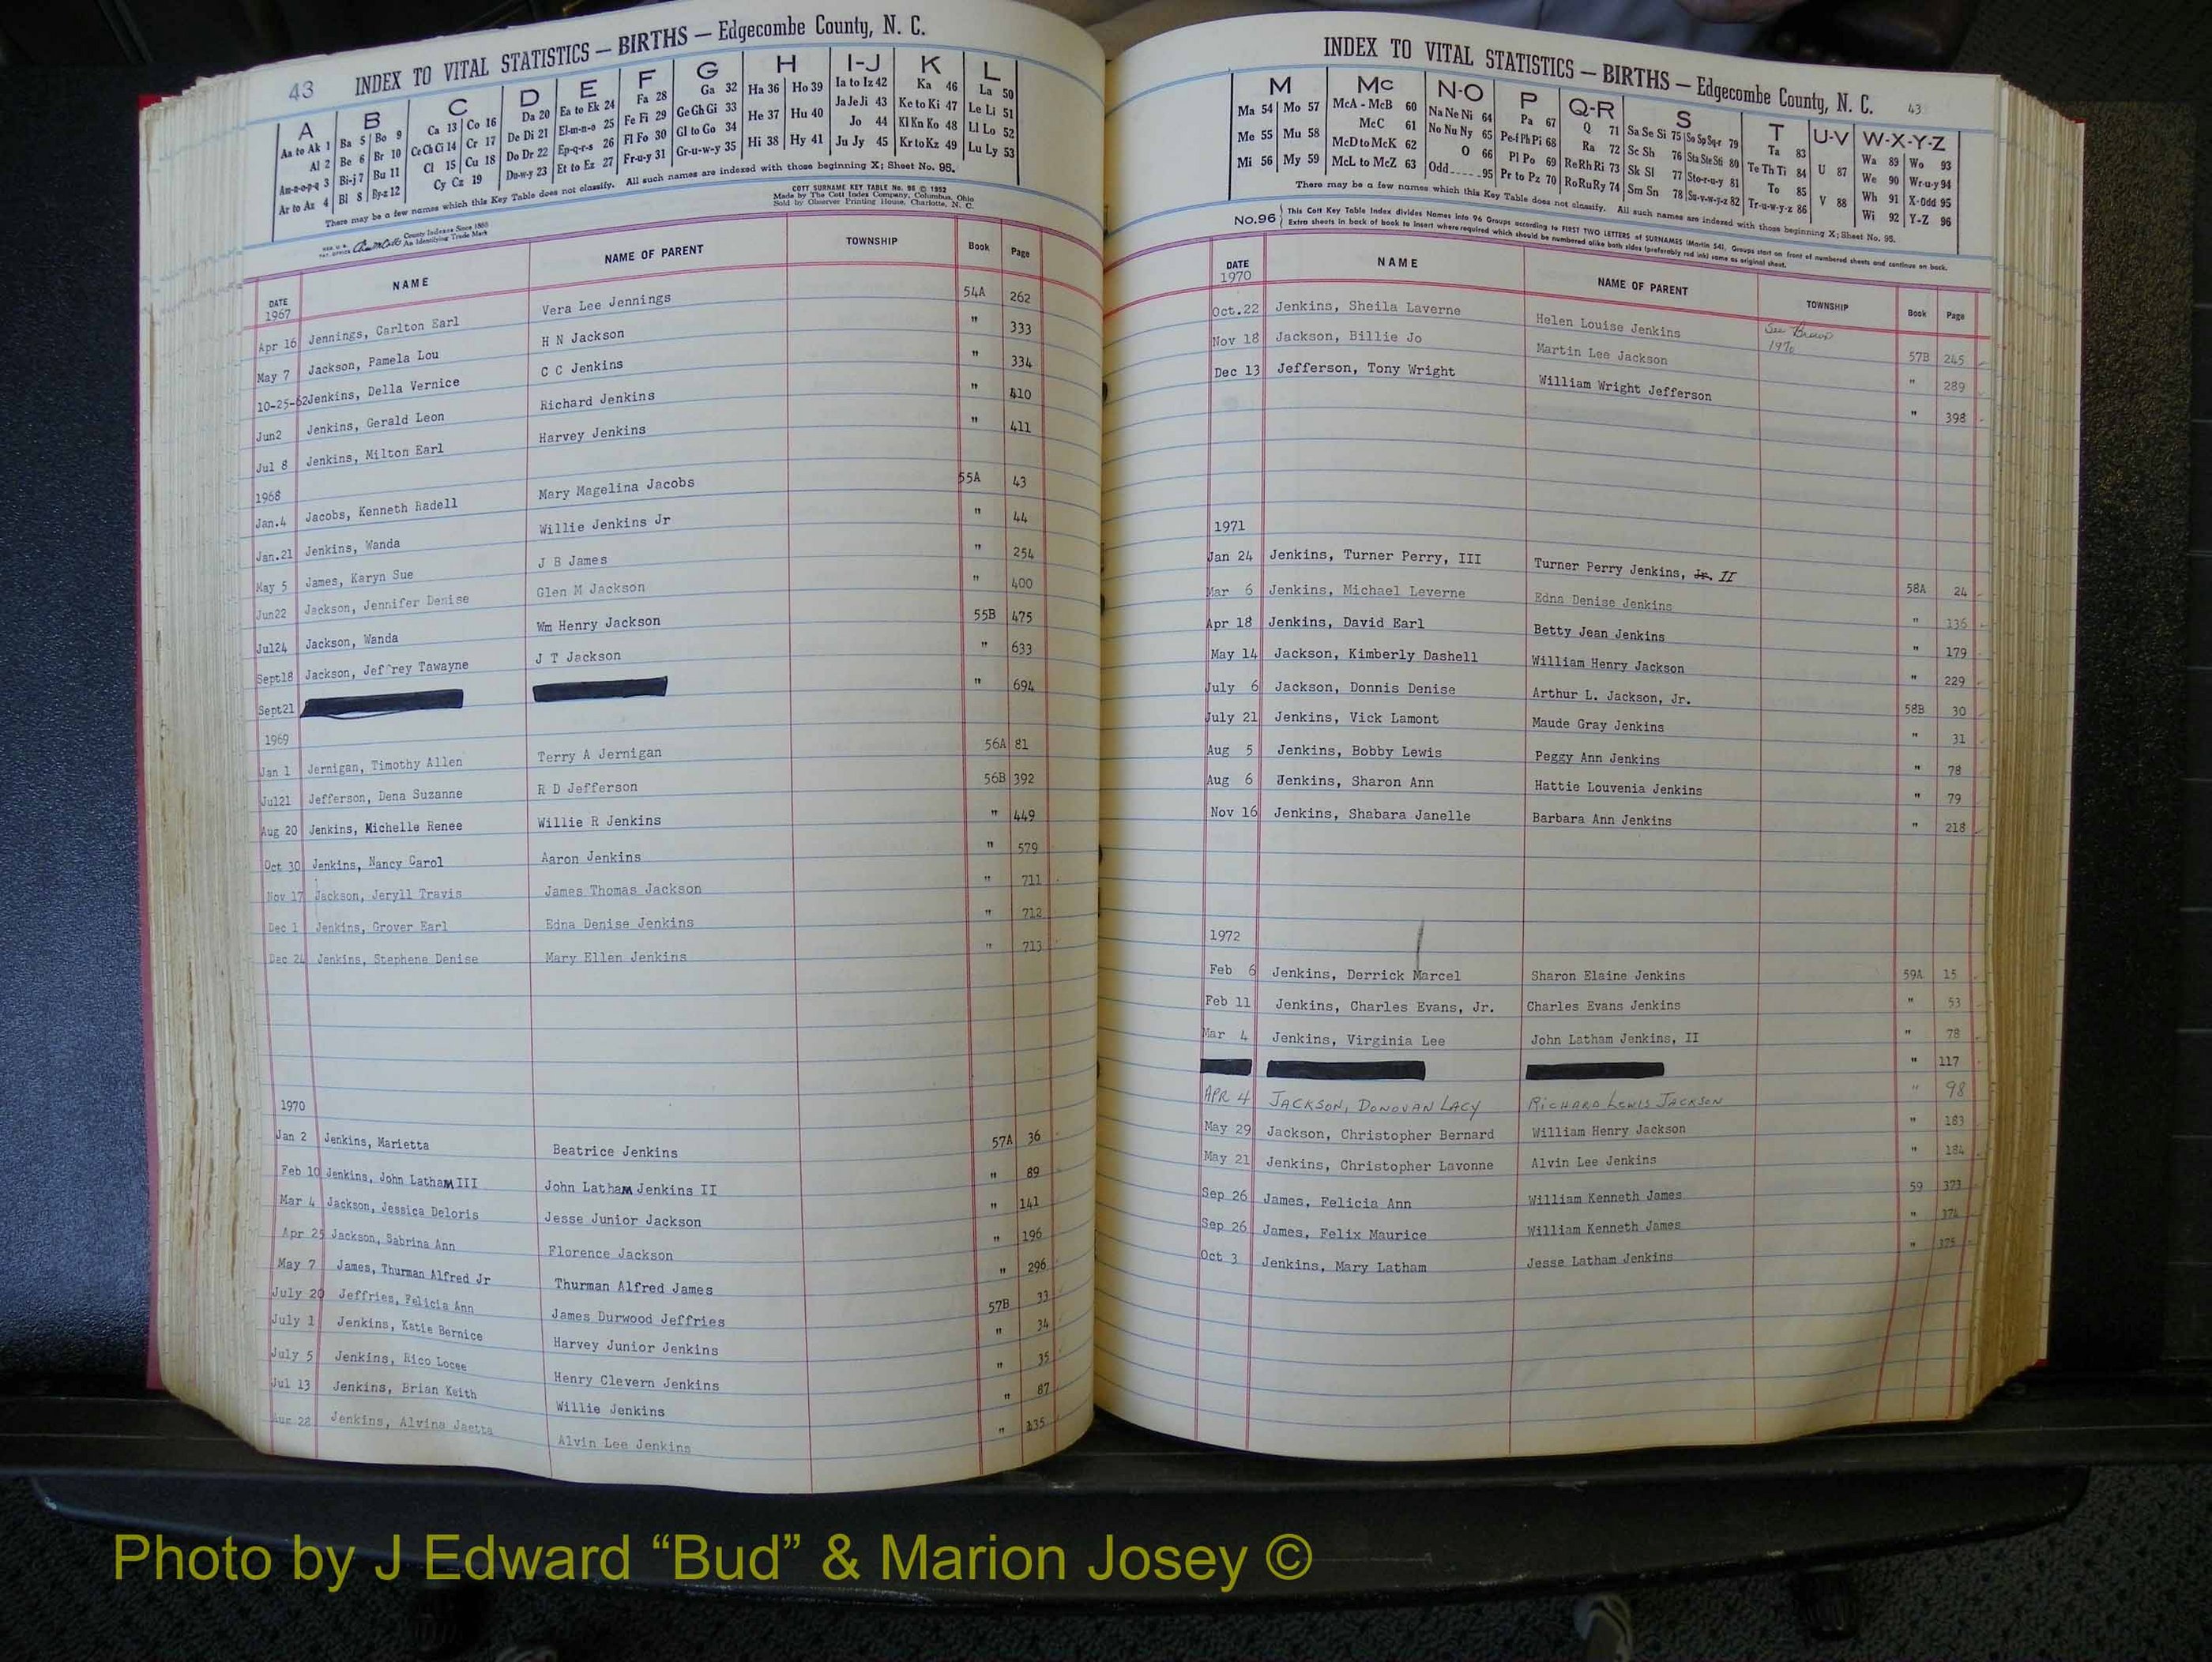 43 INDEX TO VITAL STATISTICS — BIRTHS — Edgecombe County, N. C.
A B C D E F G H I-J K L
Aa to Ak 1 Ba 5 Bo 9 Ca 13 Co 16 Da 20 Ea to Ek 24 Fa 28 Ga 32 Ha 36 Ho 39 Ia to Iz 42 Ka 46 La 50
Al 2 Be 6 Br 10 Ce Ch Ci 14 Cr 17 De Di 21 El-m-n-o 25 Fe Fi 29 Ge Gh Gi 33 He 37 Hu 40 Ja Je Ji 43 Ke to Ki 47 Le Li 51
Am-n-o-p-q 3 Bi-j 7 Bu 11 Cl 15 Cu 18 Do Dr 22 Ep-q-r-s 26 Fl Fo 30 Gl to Go 34 Hi 38 Hy 41 Jo 44 Kl Kn Ko 48 Ll Lo 52
Ar to Az 4 Bl 8 By-z 12 Cy Cz 19 Du-w-y 23 Et to Ez 27 Fr-u-y 31 Gr-u-w-y 35 Ju Jy 45 Kr to Kz 49 Lu Ly 53
There may be a few names which this Key Table does not classify. All such names are indexed with those beginning X; Sheet No. 95.
County Indexes Since 1888
An Identifying Trade Mark
COTT SURNAME KEY TABLE No. 96 © 1952
Made by The Cott Index Company, Columbus, Ohio
Sold by Observer Printing House, Charlotte, N. C.
DATE NAME NAME OF PARENT TOWNSHIP Book Page
1967
Apr 16 Jennings, Carlton Earl Vera Lee Jennings 54A 262
May 7 Jackson, Pamela Lou H N Jackson " 333
10-25-62 Jenkins, Della Vernice C C Jenkins " 334
Jun2 Jenkins, Gerald Leon Richard Jenkins " 410
Jul 8 Jenkins, Milton Earl Harvey Jenkins " 411
1968
Jan.4 Jacobs, Kenneth Radell Mary Magelina Jacobs 55A 43
Jan.21 Jenkins, Wanda Willie Jenkins Jr " 44
May 5 James, Karyn Sue J B James " 254
Jun22 Jackson, Jennifer Denise Glen M Jackson " 400
Jul24 Jackson, Wanda Wm Henry Jackson 55B 475
Sept18 Jackson, Jeffrey Tawayne J T Jackson " 633
Sept21 " 694
1969
Jan 1 Jernigan, Timothy Allen Terry A Jernigan 56A 81
Jul21 Jefferson, Dena Suzanne R D Jefferson 56B 392
Aug 20 Jenkins, Michelle Renee Willie R Jenkins " 449
Oct 30 Jenkins, Nancy Carol Aaron Jenkins " 579
Nov 17 Jackson, Jeryll Travis James Thomas Jackson " 711
Dec 1 Jenkins, Grover Earl Edna Denise Jenkins " 712
Dec 24 Jenkins, Stephene Denise Mary Ellen Jenkins " 713
1970
Jan 2 Jenkins, Marietta Beatrice Jenkins 57A 36
Feb 10 Jenkins, John Latham III John Latham Jenkins II " 89
Mar 4 Jackson, Jessica Deloris Jesse Junior Jackson " 141
Apr 25 Jackson, Sabrina Ann Florence Jackson " 196
May 7 James, Thurman Alfred Jr Thurman Alfred James " 296
July 20 Jeffries, Felicia Ann James Durwood Jeffries 57B 33
July 1 Jenkins, Katie Bernice Harvey Junior Jenkins " 34
July 5 Jenkins, Rico Locee Henry Clevern Jenkins " 35
Jul 13 Jenkins, Brian Keith Willie Jenkins " 87
Aug 28 Jenkins, Alvina Jaetta Alvin Lee Jenkins " 135
INDEX TO VITAL STATISTICS — BIRTHS — Edgecombe County, N. C. 43
M Mc N-O P Q-R S T U-V W-X-Y-Z
Ma 54 Mo 57 McA - McB 60 Na Ne Ni 64 Pa 67 Q 71 Sa Se Si 75 So Sp Sq-r 79 Ta 83 U 87 Wa 89 Wo 93
Me 55 Mu 58 McC 61 No Nu Ny 65 Pe-f Ph Pi 68 Ra 72 Sc Sh 76 Sta Ste Sti 80 Te Th Ti 84 V 88 We 90 Wr-u-y 94
Mi 56 My 59 McD to McK 62 O 66 Pl Po 69 Re Rh Ri 73 Sk Sl 77 Sto-r-u-y 81 To 85 Wh 91 X-Odd 95
McL to McZ 63 Odd 95 Pr to Pz 70 Ro Ru Ry 74 Sm Sn 78 Su-v-w-y-z 82 Tr-u-w-y-z 86 Wi 92 Y-Z 96
There may be a few names which this Key Table does not classify. All such names are indexed with those beginning X; Sheet No. 95.
No.96 This Cott Key Table Index divides Names into 96 Groups according to FIRST TWO LETTERS of SURNAMES (Martin 54). Groups start on front of numbered sheets and continue on back.
Extra sheets in back of book to insert where required which should be numbered alike both sides (preferably red ink) same as original sheet.
DATE NAME NAME OF PARENT TOWNSHIP Book Page
1970
Oct.22 Jenkins, Sheila Laverne Helen Louise Jenkins See Brown 1970 57B 245
Nov 18 Jackson, Billie Jo Martin Lee Jackson " 289
Dec 13 Jefferson, Tony Wright William Wright Jefferson " 398
1971
Jan 24 Jenkins, Turner Perry, III Turner Perry Jenkins, Jr. II 58A 24
Mar 6 Jenkins, Michael Leverne Edna Denise Jenkins " 136
Apr 18 Jenkins, David Earl Betty Jean Jenkins " 179
May 14 Jackson, Kimberly Dashell William Henry Jackson " 229
July 6 Jackson, Donnis Denise Arthur L. Jackson, Jr. 58B 30
July 21 Jenkins, Vick Lamont Maude Gray Jenkins " 31
Aug 5 Jenkins, Bobby Lewis Peggy Ann Jenkins " 78
Aug 6 Jenkins, Sharon Ann Hattie Louvenia Jenkins " 79
Nov 16 Jenkins, Shabara Janelle Barbara Ann Jenkins " 218
1972
Feb 6 Jenkins, Derrick Marcel Sharon Elaine Jenkins 59A 15
Feb 11 Jenkins, Charles Evans, Jr. Charles Evans Jenkins " 53
Mar 4 Jenkins, Virginia Lee John Latham Jenkins, II " 78
" 117
APR 4 JACKSON, DONOVAN LACY RICHARD LEWIS JACKSON " 98
May 29 Jackson, Christopher Bernard William Henry Jackson " 183
May 21 Jenkins, Christopher Lavonne Alvin Lee Jenkins " 184
Sep 26 James, Felicia Ann William Kenneth James 59 373
Sep 26 James, Felix Maurice William Kenneth James " 374
Oct 3 Jenkins, Mary Latham Jesse Latham Jenkins " 375
Photo by J Edward “Bud” & Marion Josey ©